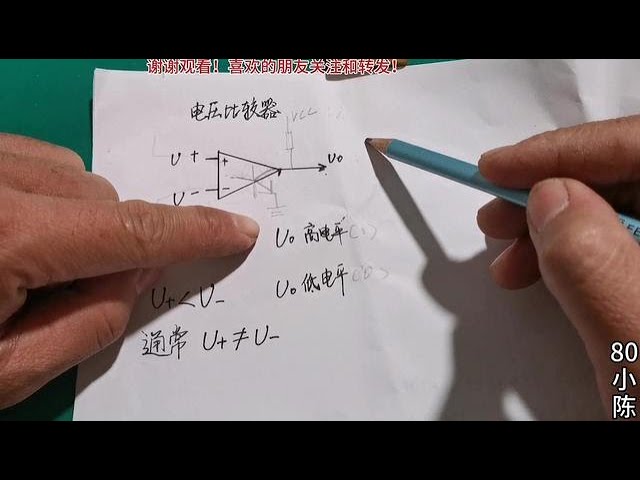 谢谢观看！喜欢的朋友关注和转发！
电压比较器
VCC
U +
+
Uo
U -
-
Uo 高电平(1)
U+<U- Uo 低电平(0)
通常 U+≠U-
80
小
陈